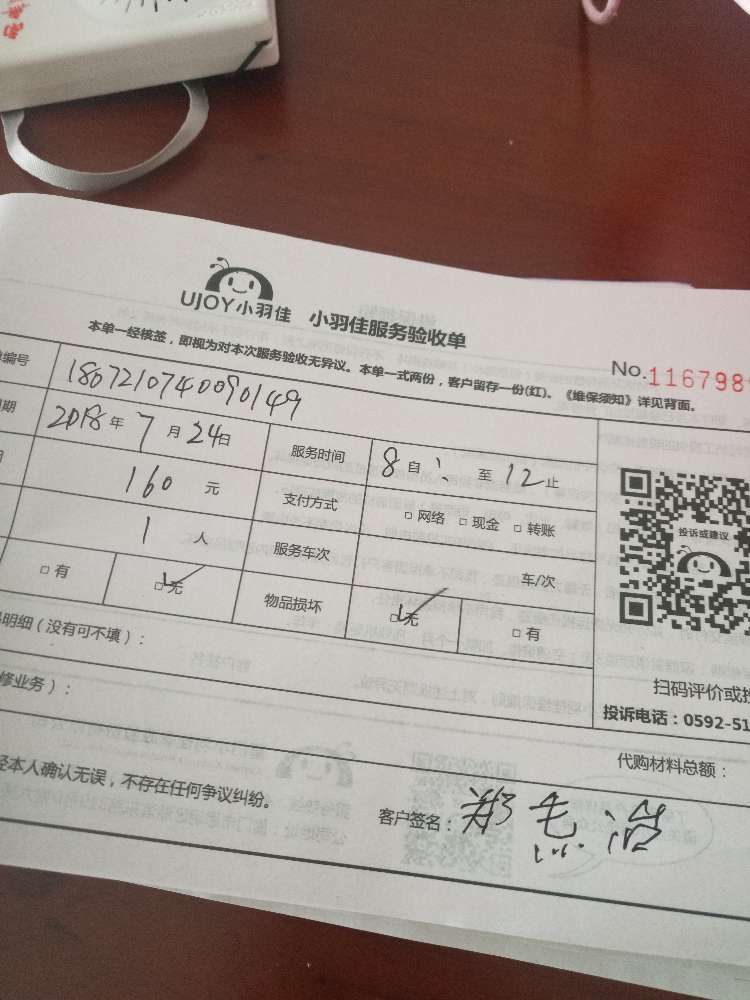 UJOY小羽佳 小羽佳服务验收单
本单一经核签，即视为对本次服务验收无异议。本单一式两份，客户留存一份(红)。《维保须知》详见背面。
No.116798
编号 1807210740090149
期 2018年7月24日 服务时间 8自 至12止
160元 支付方式 □网络 □现金 □转账
1人 服务车次 车/次
□有 □无 物品损坏 □无 □有
明细（没有可不填）：
修业务）：
投诉或建议
扫码评价或投
投诉电话：0592-51
代购材料总额：
经本人确认无误，不存在任何争议纠纷。
客户签名：郑 治